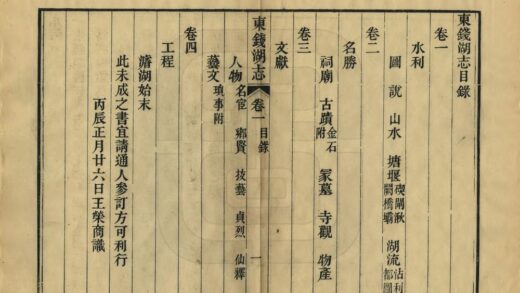 東錢湖志目錄
卷一
水利
圖說 山水 塘堰碶閘湫橋壩 湖流沾利都圖
卷二
名勝
祠廟 古蹟金石附 冢墓 寺觀 物產
卷三
文獻
東錢湖志 卷一 目錄 一
人物名宦 鄉賢 技藝 貞烈 仙釋
藝文瑣事附
卷四
工程
濬湖始末
此未成之書宜請通人參訂方可利行
丙辰正月廿六日王榮商識